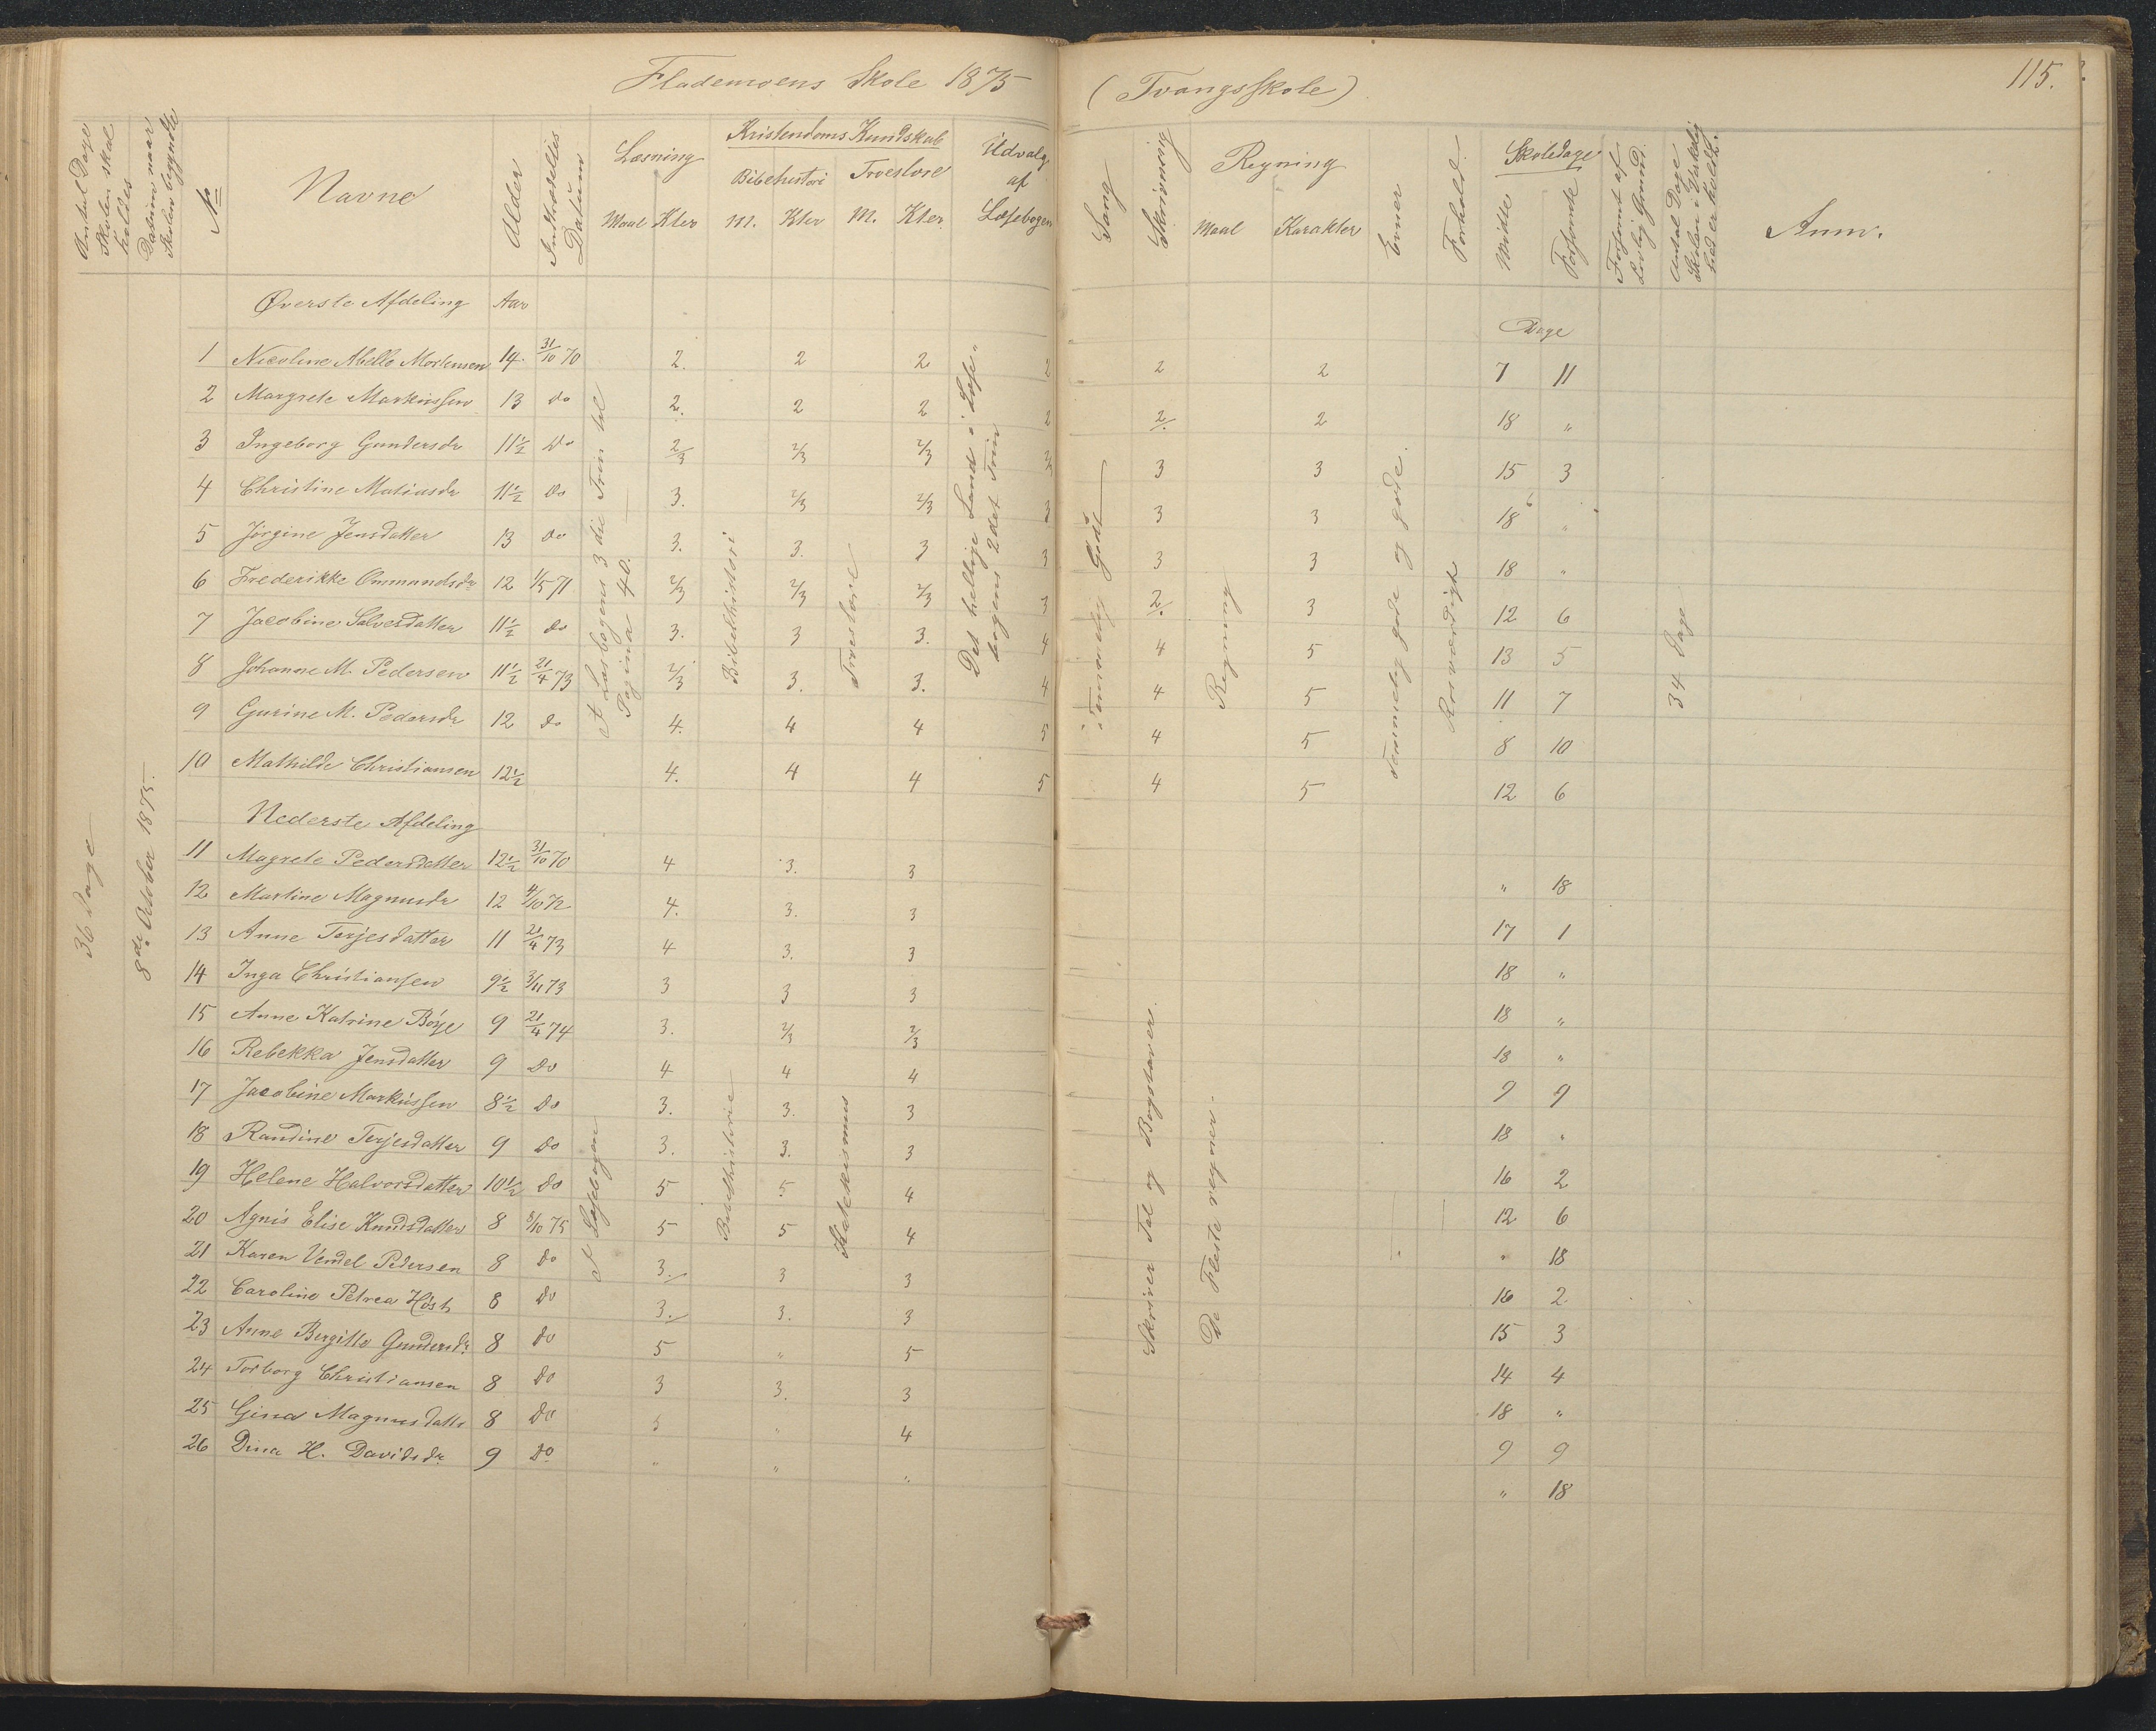 Flademoens Skole 1875 (Tvangsskole) 115.
Antal Dage Skolen skal holdes
Datum naar Skolen begyndte
No
Navne
Alder
Indtrædelses Datum
Læsning
Maal Kter
Kristendoms Kundskab
Bibelhistori Troeslære
M. Kter M. Kter.
Udvalg af Læsebogen
Sang
Skrivning
Regning
Maal Karakter
Evner
Forhold.
Skoledage
Mødte Forsømte
Forsømt af Lovlig Grund.
Antal Dage Skolen i Virkelighed er holdt.
Anm.
36 Dage
8de October 1875.
Øverste Afdeling Aar
Dage
1 Nicoline Abello Mortensen 14. 31/10 70 2. 2 2 2 2 2 7 11
2 Margrete Markussen 13 do 2. 2 2 2 2/. 2 18 "
3 Ingeborg Gundersdr 11½ do 2/3 2/3 2/3 3 3 15 3
4 Christine Matiasdr 11½ do 3. 2/3 2/3 3 3 3 18 "
5 Jørgine Jensdatter 13 do 3. 3. 3 3 3 3 18 "
6 Frederikke Ommundsdr 12 1/5 71 2/3 2/3 2/3 3 2/. 3 12 6
7 Jacobine Salvesdatter 11½ do 3. 3 3. 4 4 5 13 5
8 Johanne M. Pedersen 11½ 21/4 73 2/3 3. 3. 4 4 5 11 7
9 Gurine M. Pedersdr 12 do 4. 4 4 5 4 5 8 10
10 Mathilde Christiansen 12½ 4. 4 4 5 4 5 12 6
Af Læsbogens 3die Trin til Pagina 40.
Bibelhistori
Troeslære
Det hellige Land i Læse-
bogens 2det Trin
Temmelig Godt
Regning
Temmelig gode og gode.
Rosværdigt
34 Dage
Nederste Afdeling
11 Magrete Pedersdatter 12½ 31/10 70 4 3. 3 " 18
12 Martine Magnusdr 12 4/10 72 4. 3. 3 17 1
13 Anne Terjesdatter 11 21/4 73 4 3. 3 18 "
14 Inga Christiansen 9½ 3/11 73 3 3 3 18 "
15 Anne Katrine Børje 9 21/4 74 3. 2/3 2/3 18 "
16 Rebekka Jensdatter 9 do 4 4 4 9 9
17 Jacobine Markussen 8½ do 3. 3. 3 18 "
18 Randine Terjesdatter 9 do 3. 3. 3 16 2
19 Helene Halvorsdatter 10½ do 5 5 4 12 6
20 Agnis Elise Knudsdatter 8 8/10 75 5 5 4 " 18
21 Karen Vendel Pedersen 8 do 3./ 3 3 16 2
22 Caroline Petrea Høst 8 do 3./ 3. 3 15 3
23 Anne Bergitte Gundersdr 8 do 5 " 5 14 4
24 Torborg Christiansen 8 do 3 3. 3 18 "
25 Gina Magnusdatter 8 do 5 " 4 9 9
26 Dina H. Davidsdr. 9 do " " " " 18
Af Læsebogen
Bibelhistorie
Katekismus
Skriver Tal og Bogstaver.
De Fleste regner.